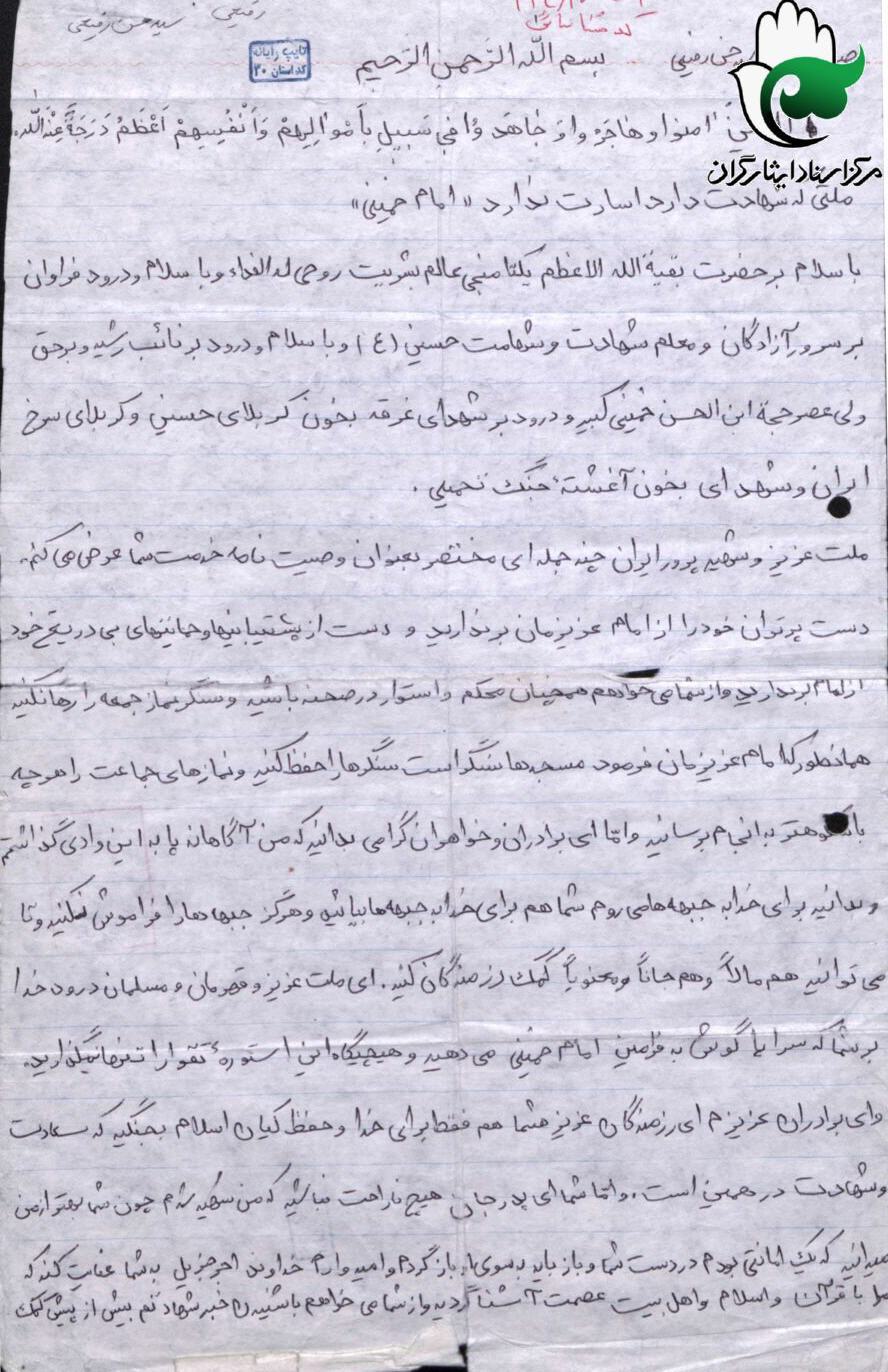 رفیعی سید حسن رفیعی
کد شناسائی
تایپ رایانه
کد استان ۳۰
بسم اللّه الرّحمن الرّحیم
مرکز اسناد ایثارگران
امنوا و هاجَرُ وا وَ جٰاهَد وُا فی سَبیلِ بِأَمْوالِهِمْ وَاَنْفُسِهِمْ اَعْظَمُ دَرَجَةً عِنْدَاللّه.
ملتی که شهادت دارد اسارت ندارد «امام خمینی»
با سلام بر حضرت بقیة الله الاعظم یکتا منجی عالم بشریت روحی له الفداء و با سلام و درود فراوان
بر سرور آزادگان و معلم شهادت و شهامت حسین (ع) و با سلام و درود بر نائب رشید و برحق
ولی عصر حجة ابن الحسن خمینی کبیر و درود بر شهدای غرقه بخون کربلای حسین و کربلای سرخ
ایران و شهدای بخون آغشتهٔ جنگ تحمیلی.
ملت عزیز و شهید پرور ایران چند جمله ای مختصر بعنوان وصیت نامه خدمت شما عرض می کنم.
دست پرتوان خود را از امام عزیزمان برندارید و دست از پشتیبانیها و حمایتهای بی دریغ خود
از امام برندارید و از شما می خواهم همچنان محکم و استوار در صحنه باشید و سنگر نماز جمعه را رها نکنید
همانطور که امام عزیزمان فرمود مسجدها سنگر است سنگرها را حفظ کنید و نمازهای جماعت را هر چه
باشکوهتر به انجام برسانید و امّا ای برادران و خواهران گرامی بدانید که من آگاهانه پا به این وادی گذاشتم
و بدانید برای خدا به جبهه ها می روم شما هم برای خدا به جبهه ها بیائید و هرگز جبهه ها را فراموش نکنید و تا
می توانید هم مالاً و هم جاناً و معنویاً کمک رزمندگان کنید. ای ملت عزیز و قهرمان و مسلمان درود خدا
بر شما که سراپا گوش به فرامین امام خمینی می دهید و هیچگاه این استورهٔ تقوا را تنها نگذارید.
وای برادران عزیزم ای رزمندگان عزیز شما هم فقط برای خدا و حفظ کیان اسلام بجنگید که سعادت
و شهادت در همین است. و امّا شما ای پدر جان هیچ ناراحت نباشید که من شهید شدم چون شما بهتر از من
میدانید که یک امانتی بودم در دست شما و باز باید به سوی او باز گردم و امیدوارم خداوند اجر جزیل به شما عنایت کند که
ما با قرآن و اسلام و اهل بیت عصمت آشنا گردید و از شما می خواهم با شنیدن خبر شهادتم بیش از پیش کمک